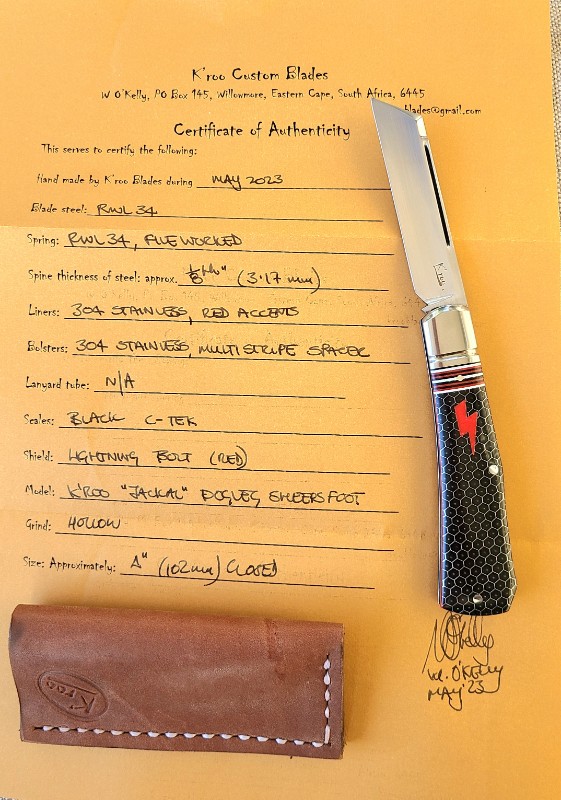 K'roo Custom Blades
W O'Kelly, PO Box 145, Willowmore, Eastern Cape, South Africa, 6445
blades@gmail.com
Certificate of Authenticity
This serves to certify the following:
Hand made by K'roo Blades during MAY 2023
Blade steel: RWL 34
Spring: RWL 34, FILEWORKED
Spine thickness of steel: approx. 1/8th" (3.17 mm)
Liners: 304 STAINLESS, RED ACCENTS
Bolsters: 304 STAINLESS, MULTI STRIPE SPACER
Lanyard tube: N/A
Scales: BLACK C-TEK
Shield: LIGHTNING BOLT (RED)
Model: K'ROO "JACKAL" DOGLEG SHEERSFOOT
Grind: HOLLOW
Size: Approximately: 4" (102mm) CLOSED
K'roo
K'roo
W. O'KELLY
MAY '23